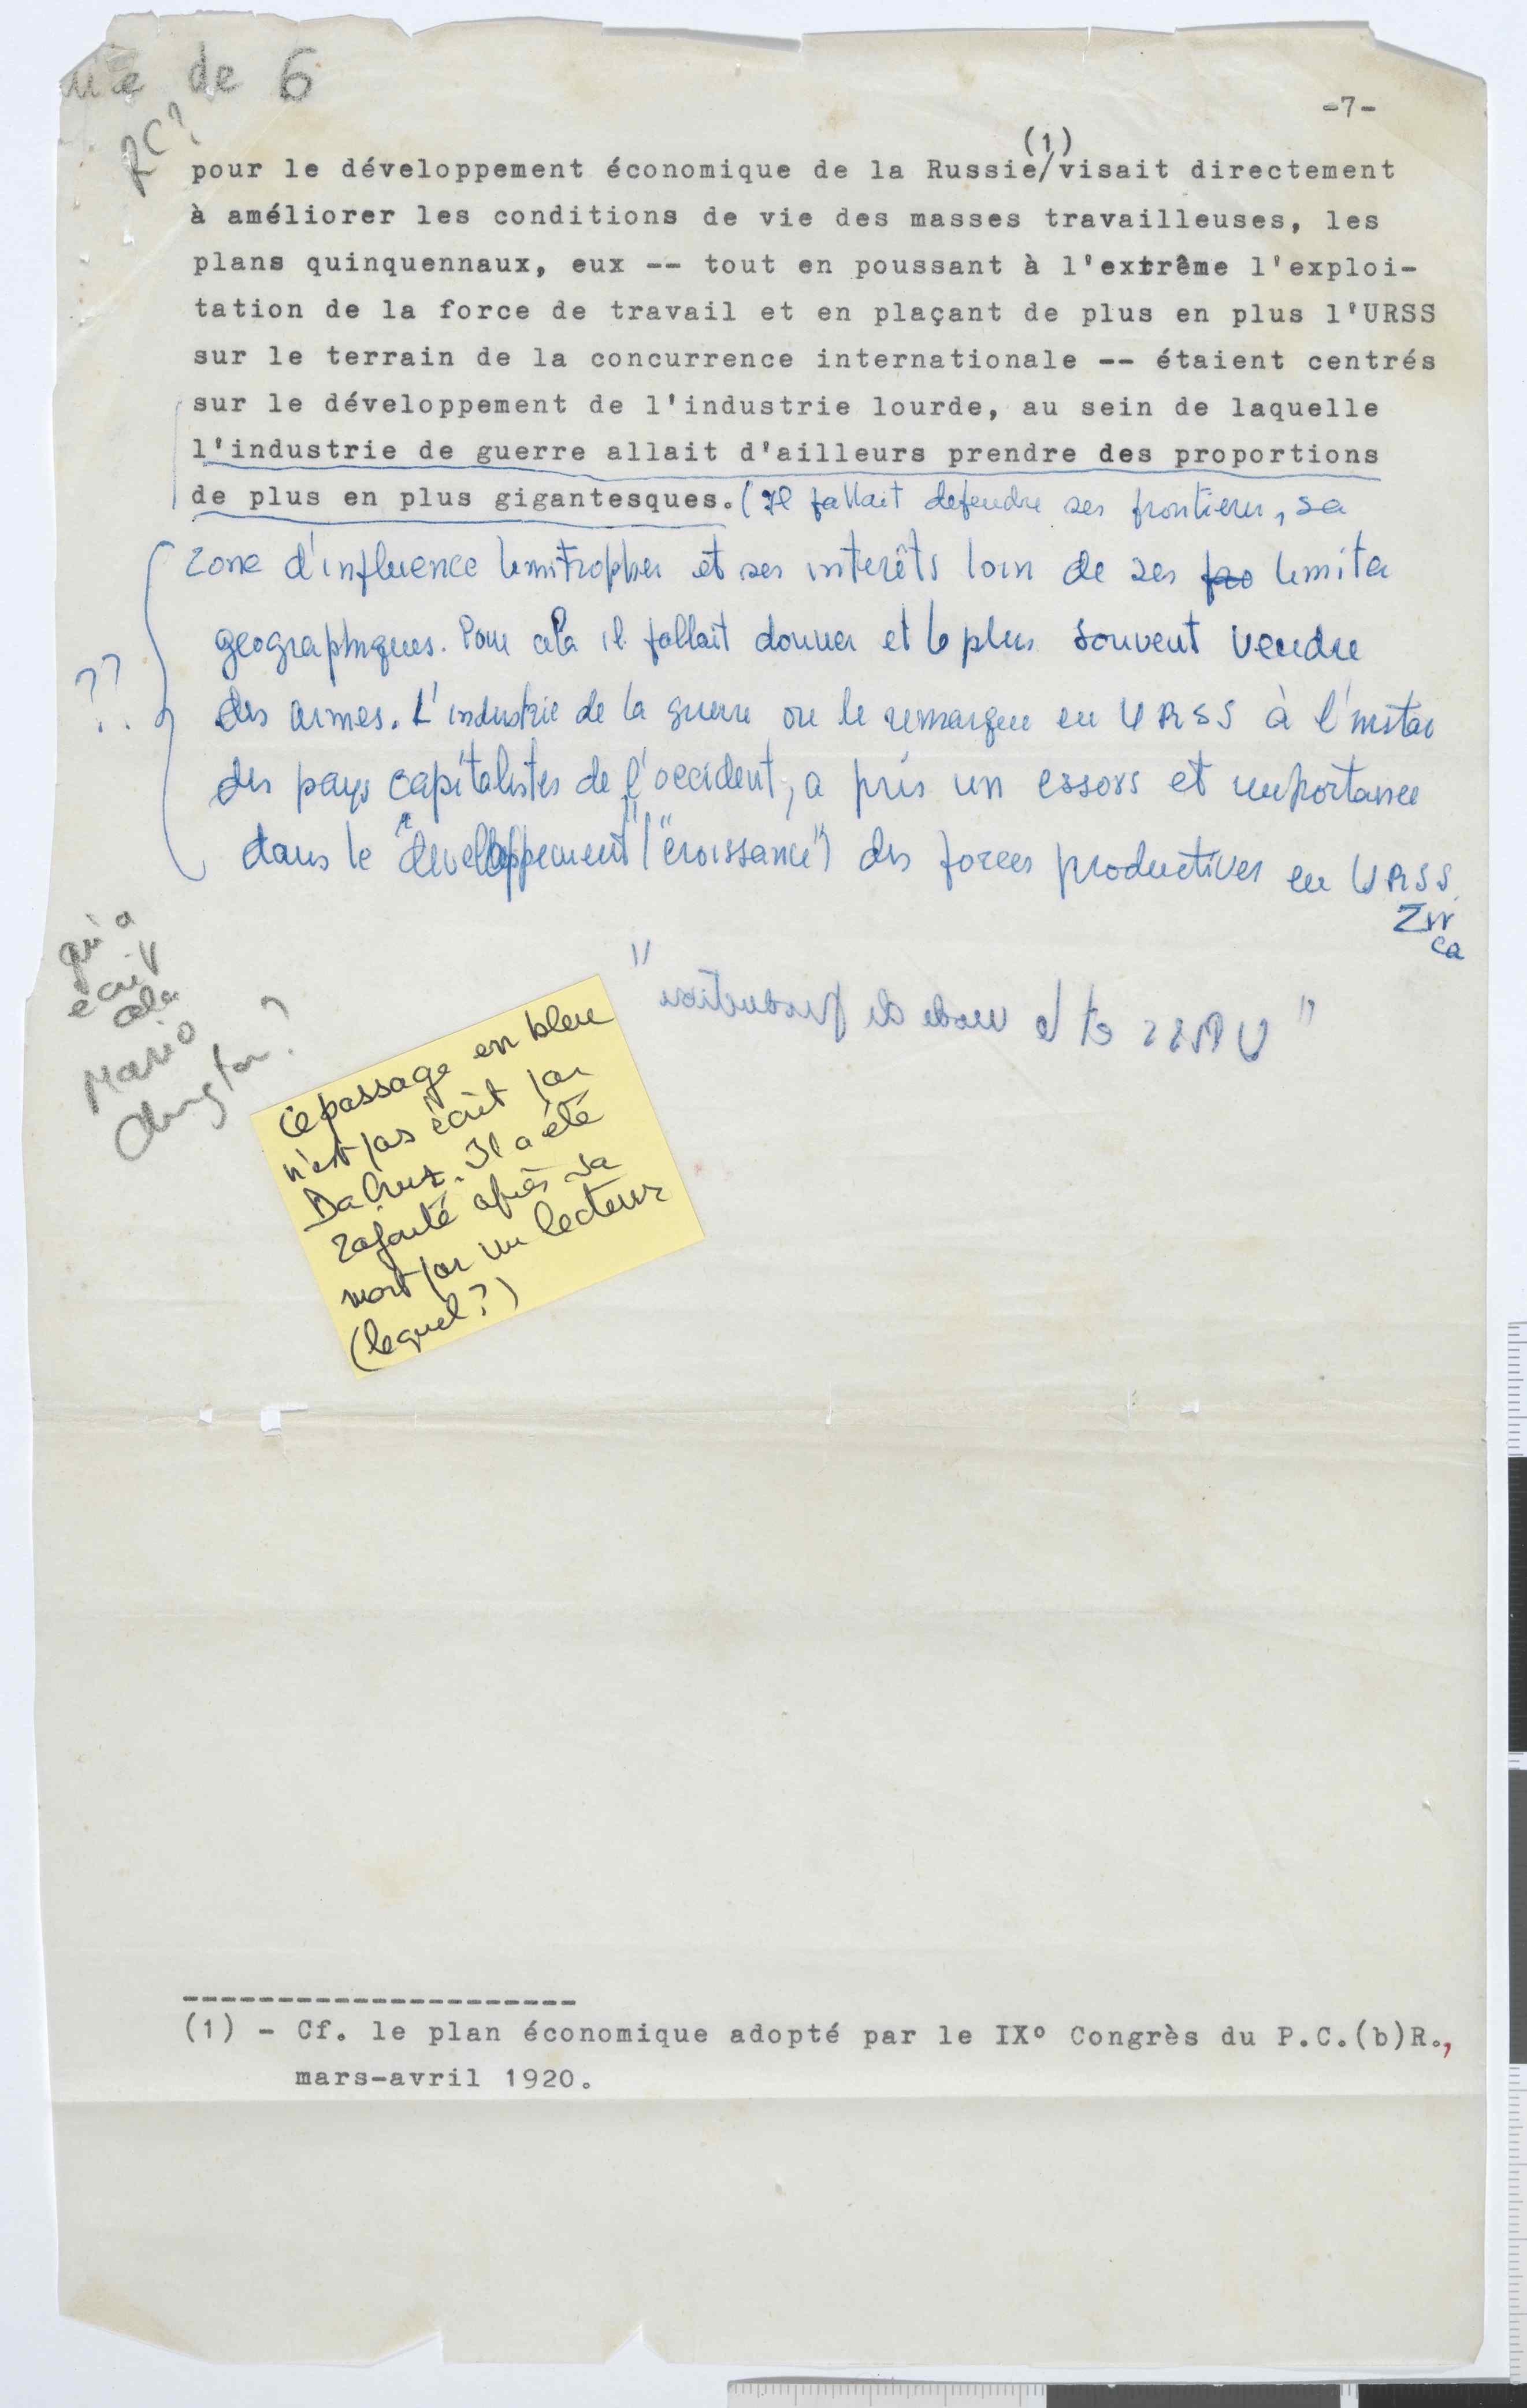 de 6
RC?
-7-
(1)
pour le développement économique de la Russie/visait directement
à améliorer les conditions de vie des masses travailleuses, les
plans quinquennaux, eux -- tout en poussant à l'extrême l'exploi-
tation de la force de travail et en plaçant de plus en plus l'URSS
sur le terrain de la concurrence internationale -- étaient centrés
sur le développement de l'industrie lourde, au sein de laquelle
l'industrie de guerre allait d'ailleurs prendre des proportions
de plus en plus gigantesques. (Il fallait defendre ses frontieres, sa
zone d'influence limitrophes et ses interêts loin de ses limites
geographiques. Pour cela il fallait donner et le plus souvent vendre
des armes. L'industrie de la guerre on le remarque en URSS à l'instar
des pays capitalistes de l'occident, a pris un essors et importance
dans le "developpement" ("croissance") des forces productives en URSS.
??
qui a
écrit
cela
Mario
?
"URSS et le mode de production"
Ce passage en bleu
n'est pas écrit par
Da Cruz. Il a été
rajouté après sa
mort par un lecteur
(lequel?)
(1) - Cf. le plan économique adopté par le IXº Congrès du P.C.(b)R.,
mars-avril 1920.